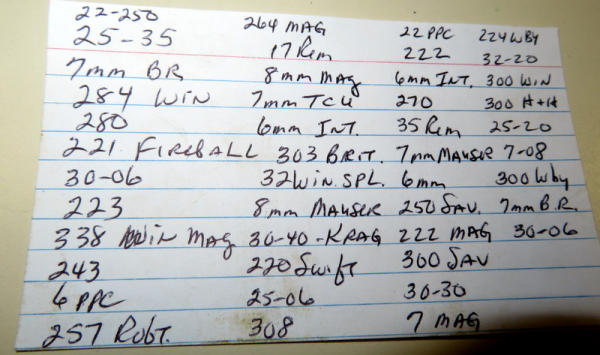 22-250 264 MAG 22 PPC 224 WBY
25-35 17 Rem 222 32-20
7mm BR 8mm mag 6mm INT. 300 WIN
284 WIN 7mm TCU 270 300 H+H
280 6mm INT. 35 Rem 25-20
221 FIREBALL 303 BRIT. 7mm MAUSER 7-08
30-06 32 WIN. SPL. 6mm 300 Wby
223 8mm MAUSER 250 SAV. 7mm B.R.
338 Win MAG 30-40-KRAG 222 MAG 30-06
243 220 Swift 300 SAV
6 PPC 25-06 30-30
257 Robt. 308 7 MAG